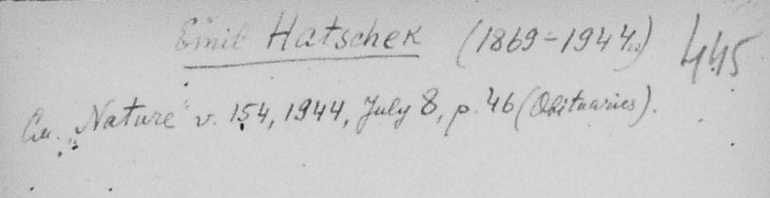 Emil Hatschek (1869-1944) 445
См. „Nature" v. 154, 1944, July 8, p. 46 (Obituaries).